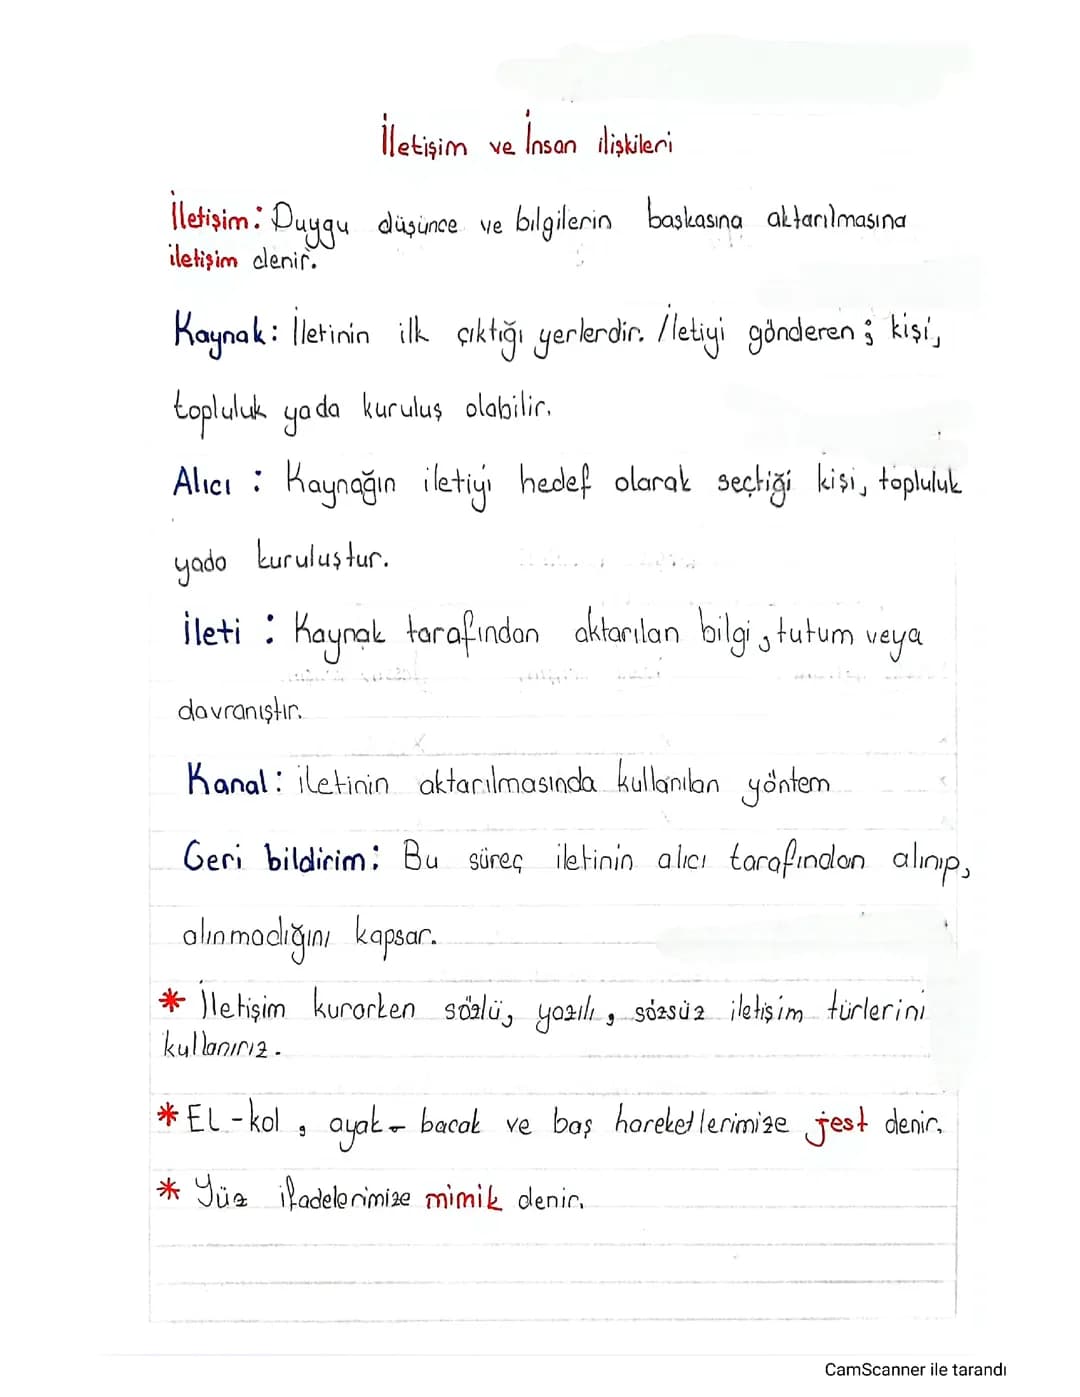 İletişim ve İnsan ilişkileri
İletişim: Duygu düşünce ve bilgilerin başkasına aktarılmasına
iletişim denir.
Kaynak: İletinin ilk çıktığı yerlerdir. İletiyi gönderen ; kişi,
topluluk yada kuruluş olabilir.
Alıcı : Kaynağın iletiyi hedef olarak seçtiği kişi, topluluk
yada kuruluştur.
İleti : Kaynak tarafından aktarılan bilgi, tutum veya
davranıştır.
Kanal: iletinin aktarılmasında kullanılan yöntem
Geri bildirim: Bu süreç iletinin alıcı tarafından alınıp,
alınmadığını kapsar.
* İletişim kurarken sözlü, yazılı, sözsüz iletişim türlerini
kullanırız.
* EL-kol, ayak-bacak ve baş hareketlerimize jest denir.
* Yüz ifadelerimize mimik denir.
CamScanner ile tarandı